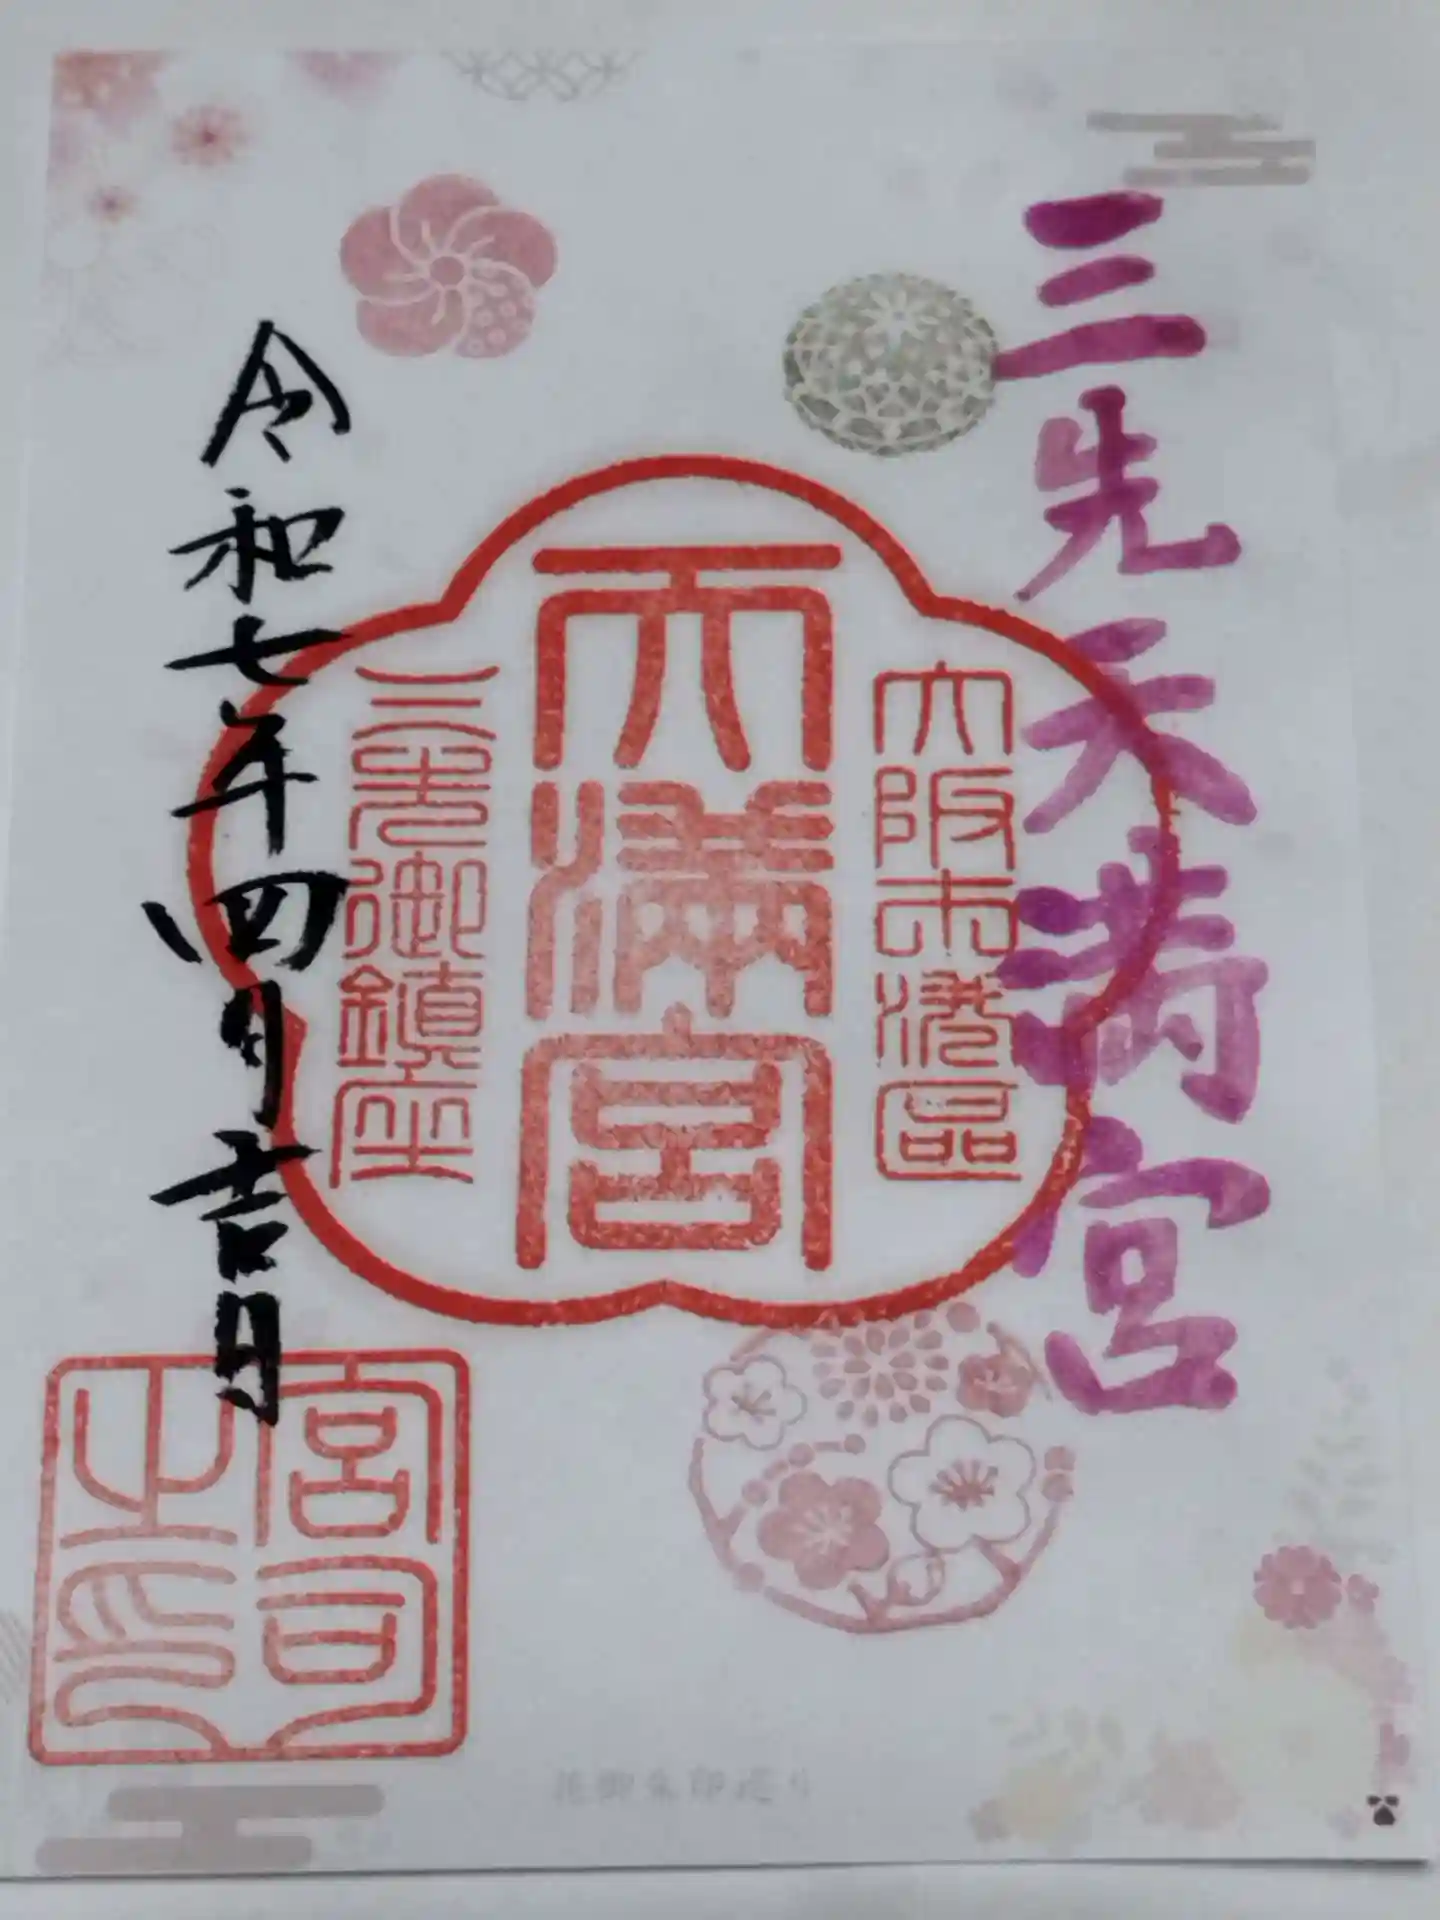 三先天満宮
大阪市港区
天満宮
三先御鎮座
令和七年四月吉日
宮司之印
花御朱印巡り